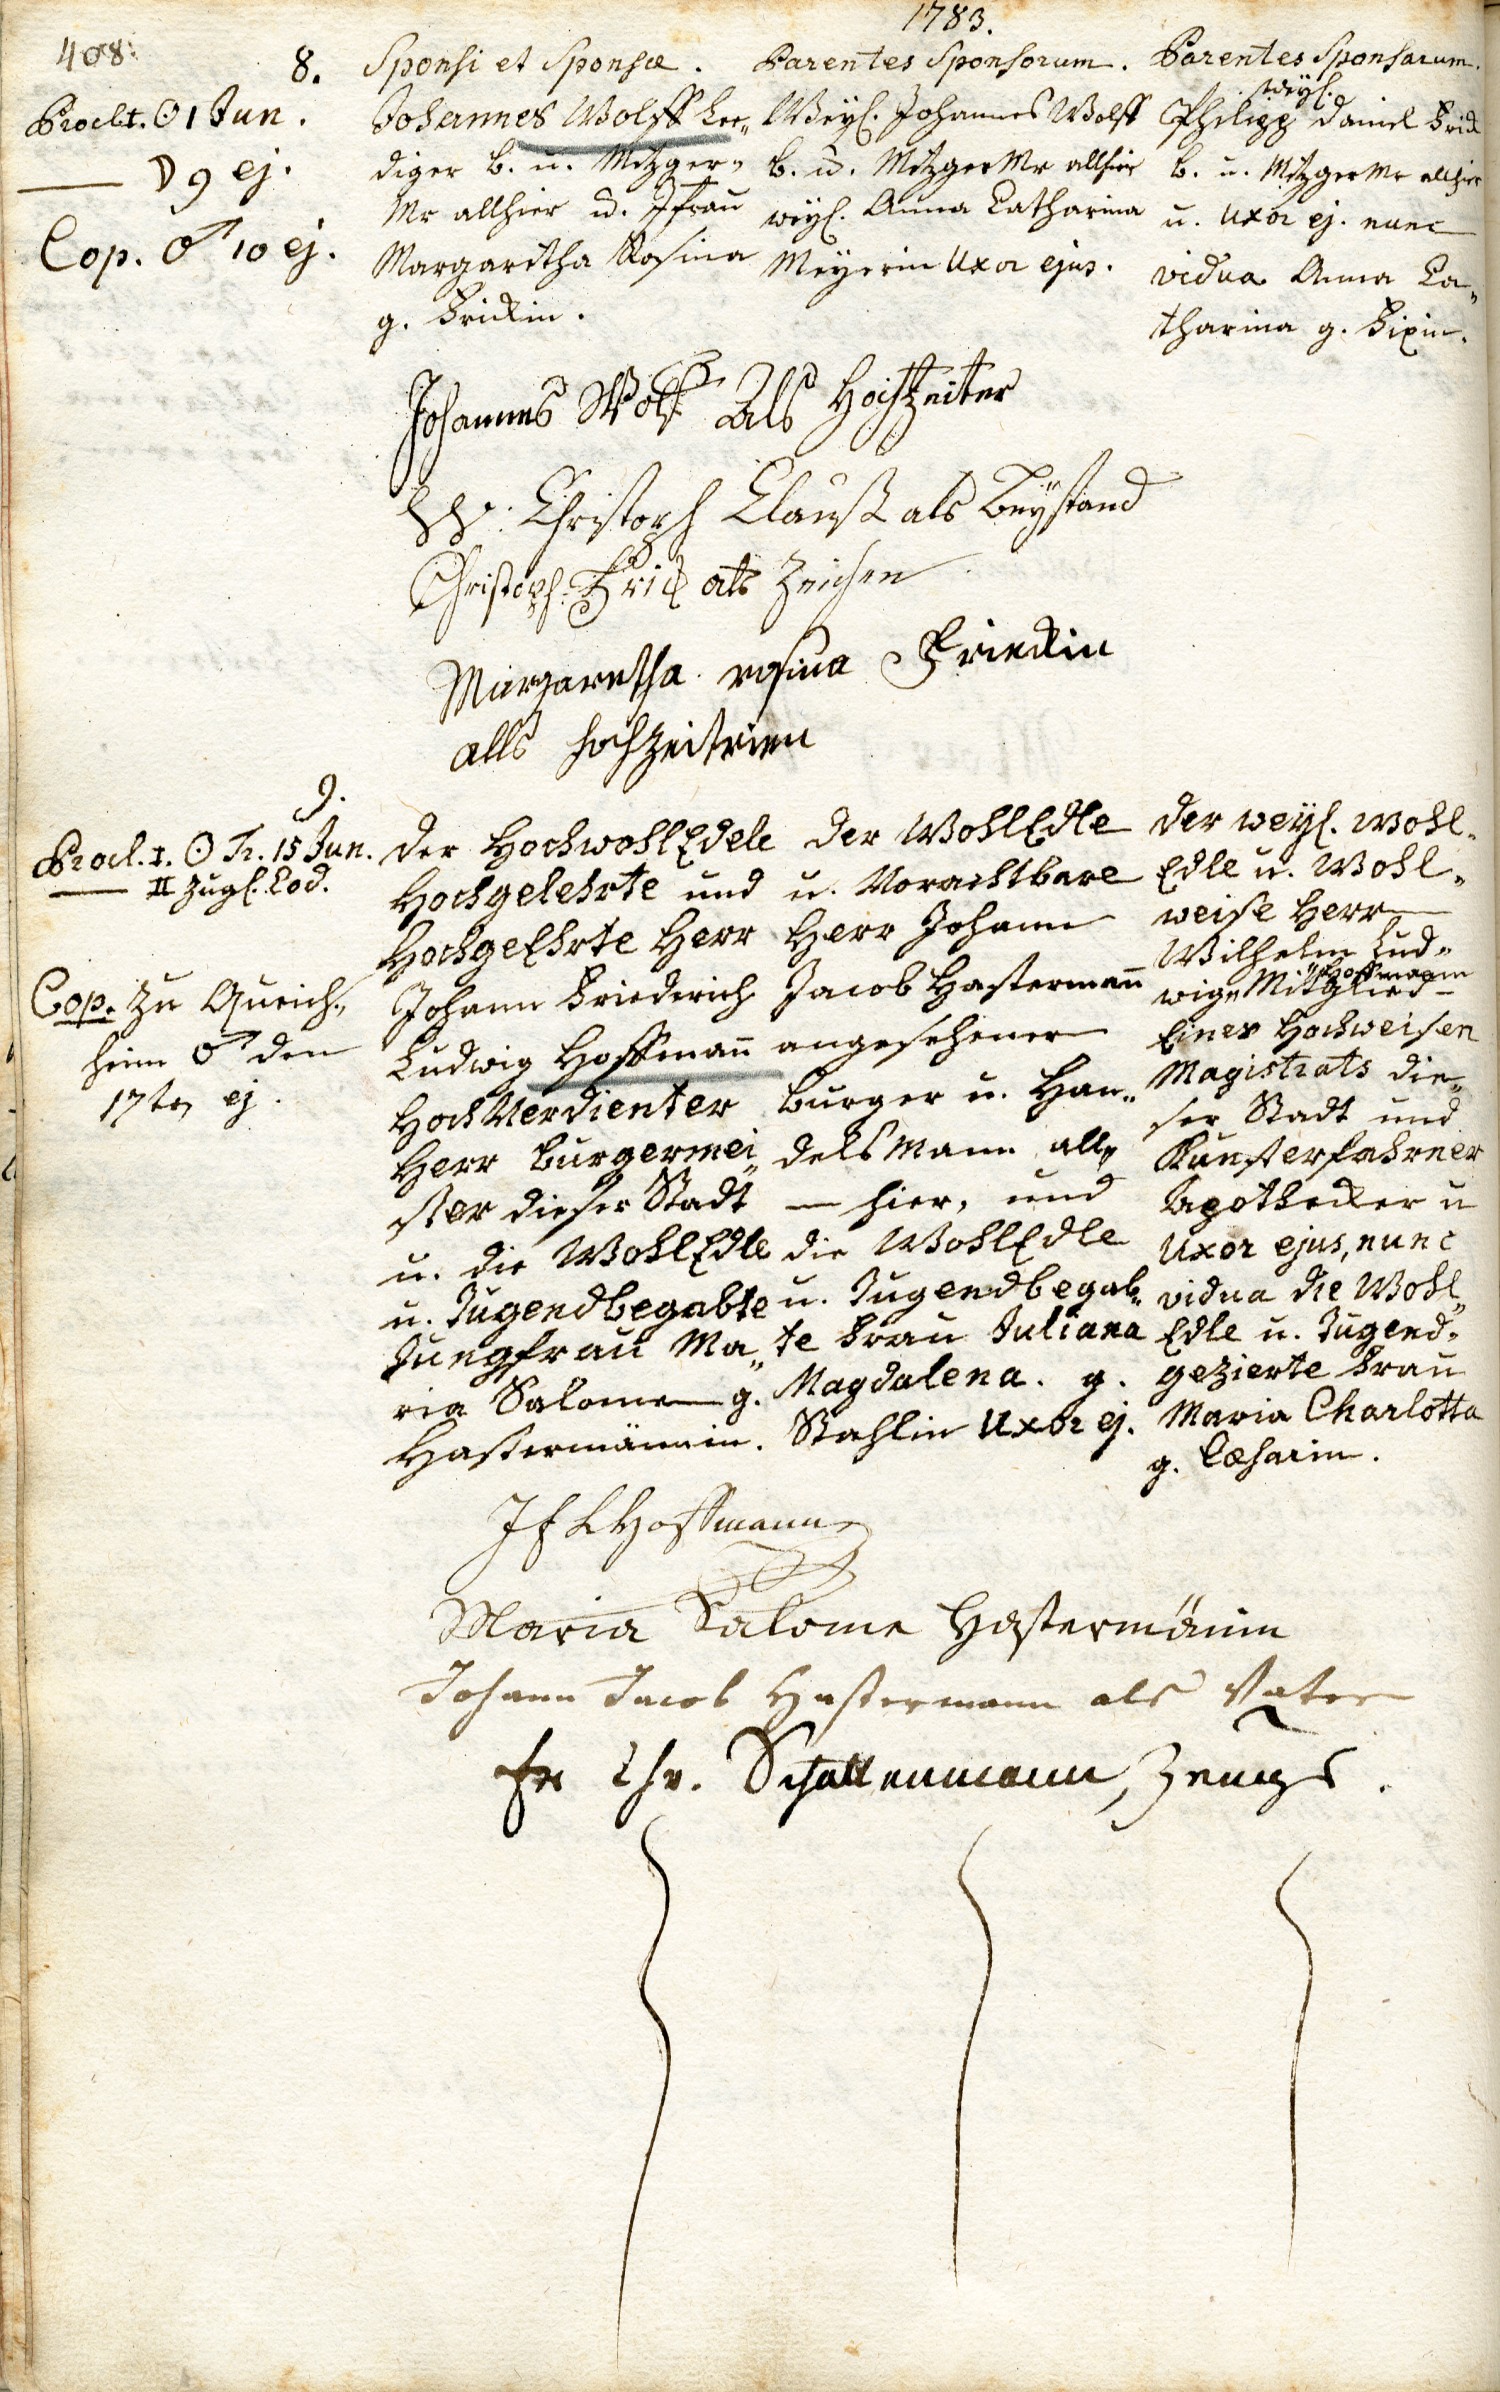 1783.
408.
8.
Sponsi et Sponsæ.
Parentes Sponsorum.
Parentes Sponsarum.
Proclt. ☉ 1 Jun.
☽ 9 ej.
Cop. ♂ 10 ej.
Johannes Wolff Lee„
diger B. u. Metzger„
Mr allhier u. Jfrau
Margaretha Rosina
g. Frickin.
Weyl. Johannes Wolff
B. u. Metzger Mr allhier
weyl. Anna Catharina
Meyerin Uxor ejus.
weyl.
Philipp Daniel Frick
B. u. Metzger Mr allhier
u. Uxor ej. nunc
vidua Anna Ca„
tharina g. Fixin.
Johannes Wolff Als Hochzeiter
Christoph Clauß als Beÿstand
Christoph Frick als Zeichen
Margaretha rosina Frieckin
alls hochzeiterien
9.
Procl. I. ☉ Tr. 15 Jun.
II zugl. eod.
Cop. zu Queich„
heim ♂ den
17ten ej.
Der HochwohlEdele
Hochgelehrte und
HochgeEhrte Herr
Johann Friederich
Ludwig Hoffmann
HochVerdienter
Herr Burgermei„
ster dieser Stadt
u. die WohlEdle
u. Tugendbegabte
Jungfrau Ma„
ria Salome g.
Hastermännin.
Der WohlEdle
u. Vorachtbare
Herr Johann
Jacob Hastermann
angesehener
Burger u. Han„
delsmann all„
hier, und
die WohlEdle
u. Tugendbegab„
te Frau Juliana
Magdalena. g.
Stahlin Uxor ej.
Der weyl. Wohl„
Edle u. Wohl„
weise Herr
Wilhelm Lud„
Hoffmann
wig Mitglied
Eines Hochweisen
Magistrats die„
ser Stadt und
Kunsterfahrner
Apothecker u
Uxor ejus, nunc
vidua die Wohl„
Edle u. Tugend„
gezierte Frau
Maria Charlotta
g. Cæsarin.
J f L Hoffmann
Maria Salome Hastermänin
Johann Jacob Hastermann als Vater
Fr Chr. Schattenmann, Zeuge.